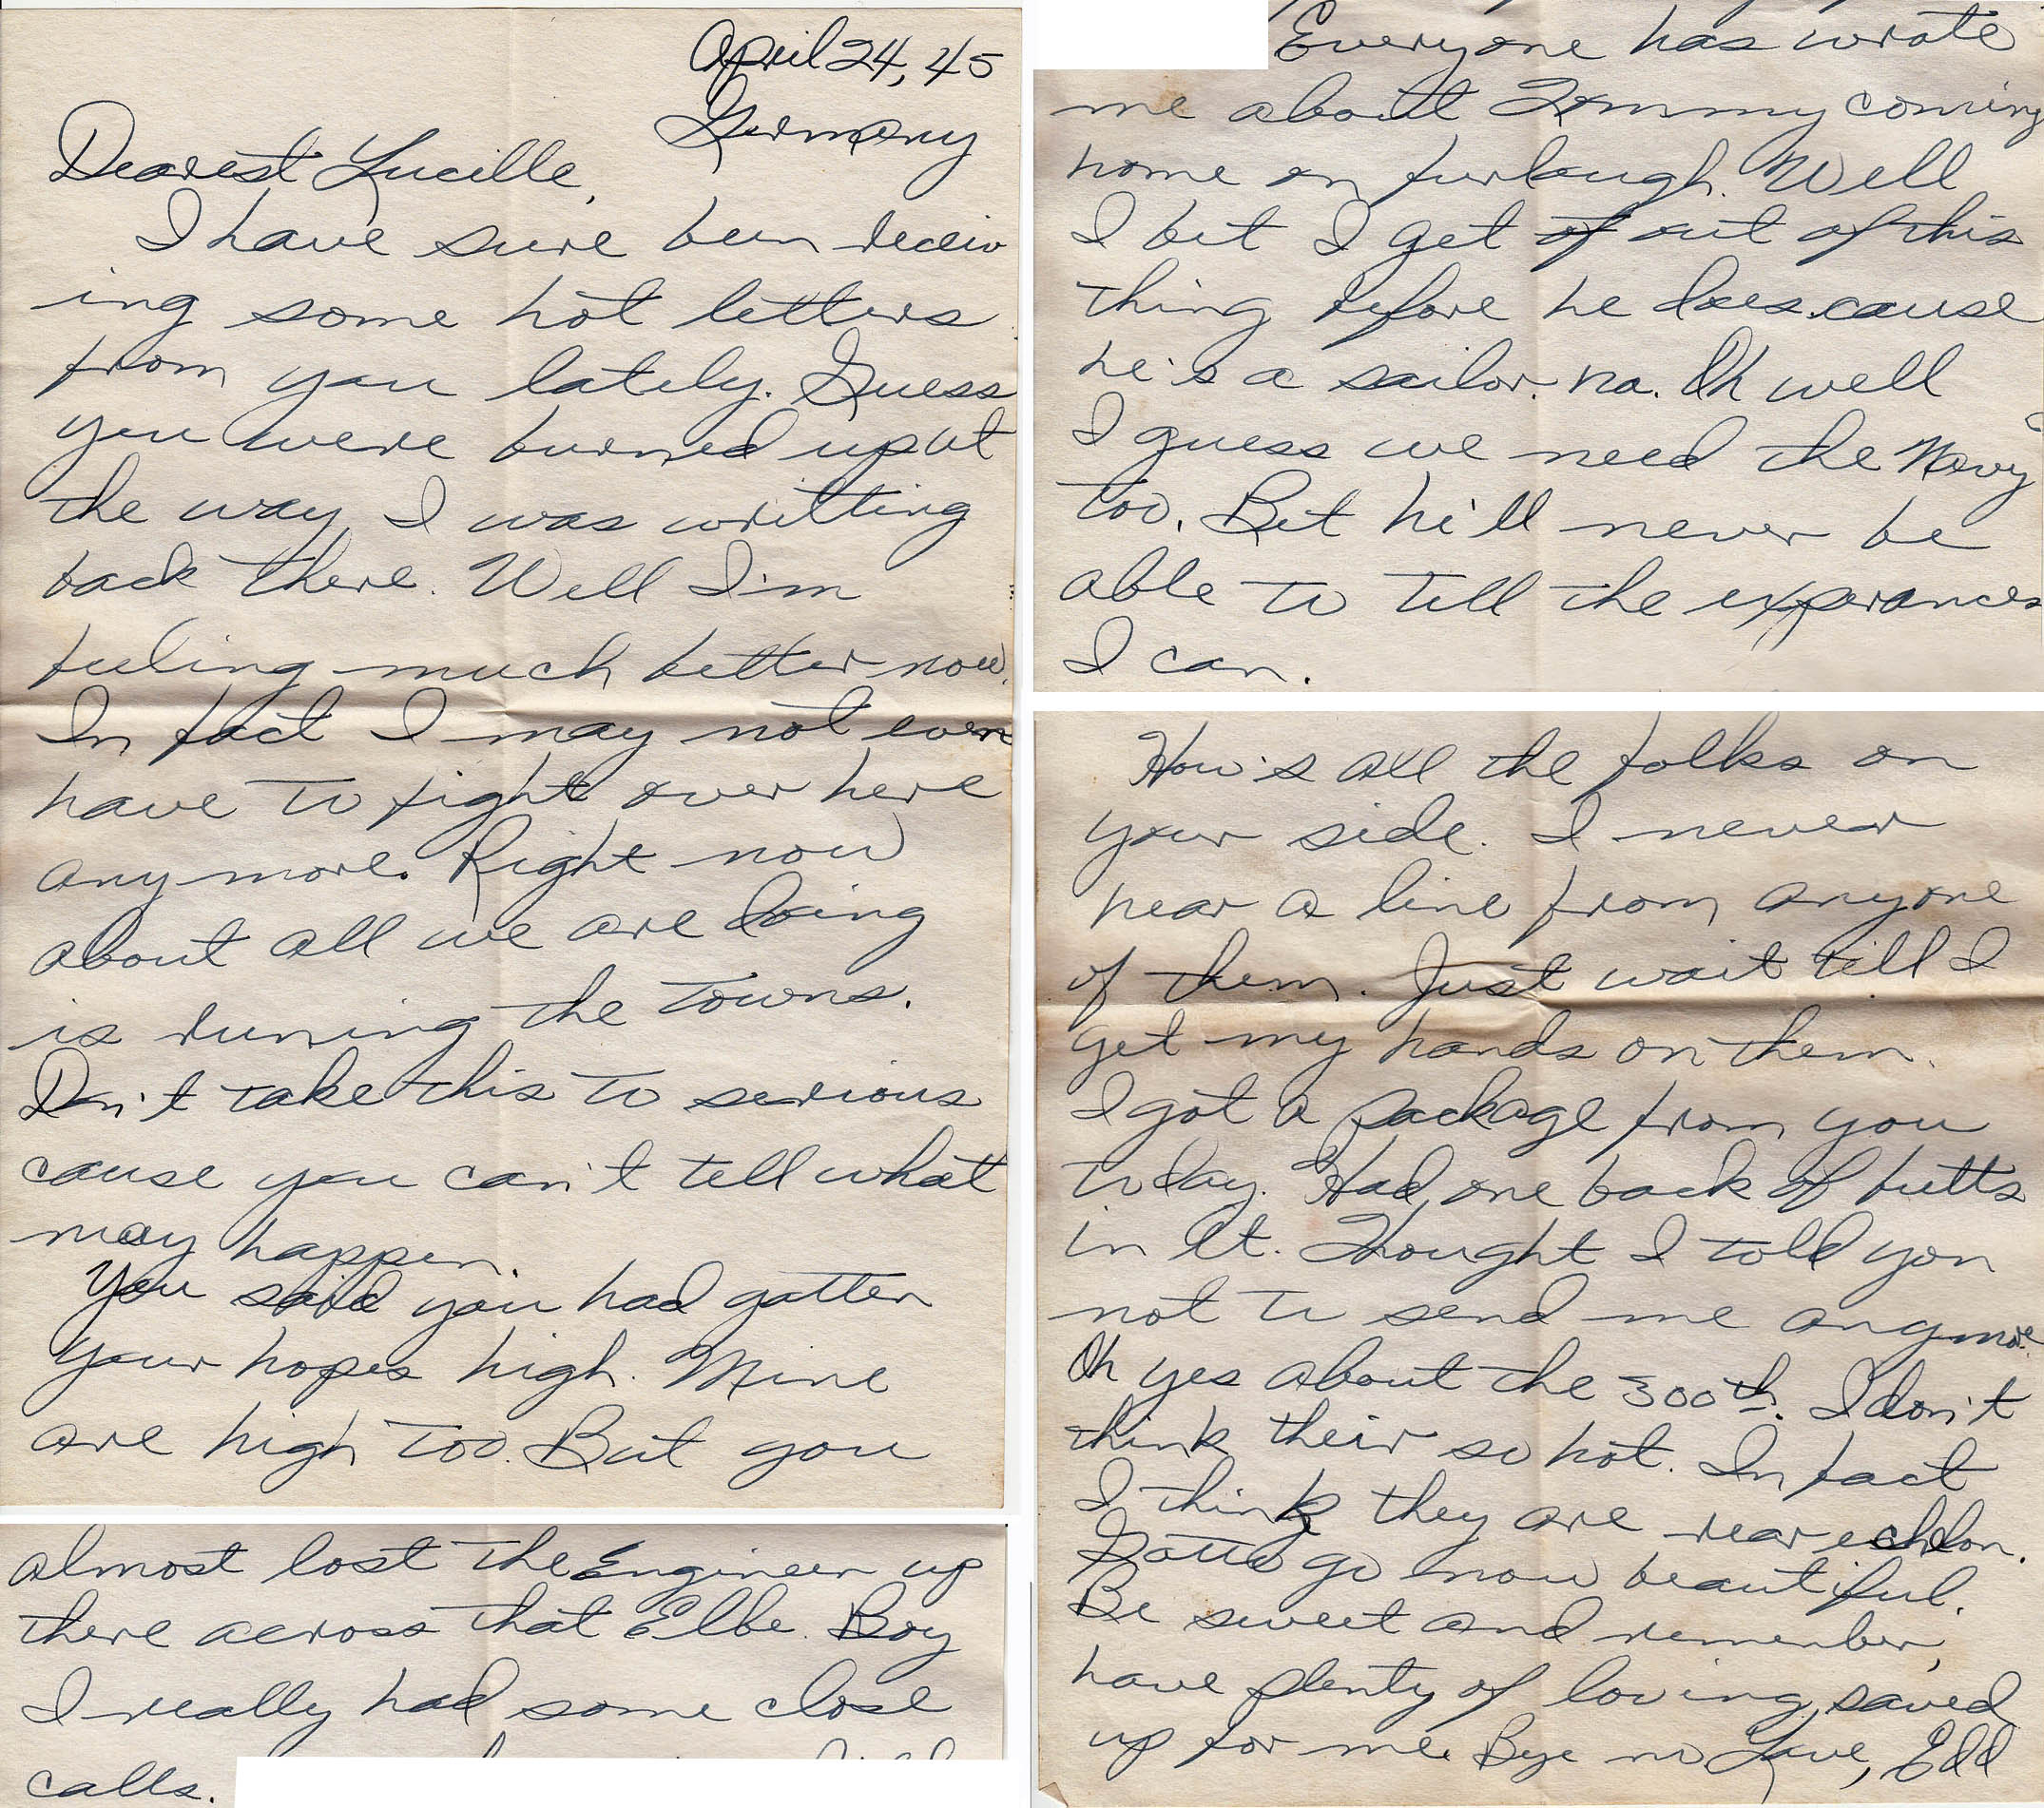 April 24, 45
Germany
Dearest Lucille,
I have sure been receiv
ing some hot letters
from you lately. Guess
you were burned up at
the way I was writting
back there. Well I'm
feeling much better now.
In fact I may not even
have to fight over here
any more. Right now
about all we are doing
is runing the towns.
Don't take this to serious
cause you can't tell what
may happen.
You said you had gotten
your hopes high. Mine
are high too. But you
almost lost the Engineer up
there across that Elbe. Boy
I really had some close
calls.
Everyone has wrote
me about Tommy coming
home on furlough. Well
I bet I get of out of this
thing before he does cause
he's a sailor. na. Oh well
I guess we need the Navy
too. But he'll never be
able to tell the experances
I can.
How's all the folks on
your side. I never
hear a line from anyone
of them. Just wait till I
get my hands on them.
I got a package from you
today. Had one back of butts
in it. Thought I told you
not to send me anymore.
Oh yes about the 300th. I don't
think their so hot. In fact
I think they are rear echelon.
Gotta go now beautiful.
Be sweet and remember,
have plenty of loving saved
up for me. Bye now Love, Edd